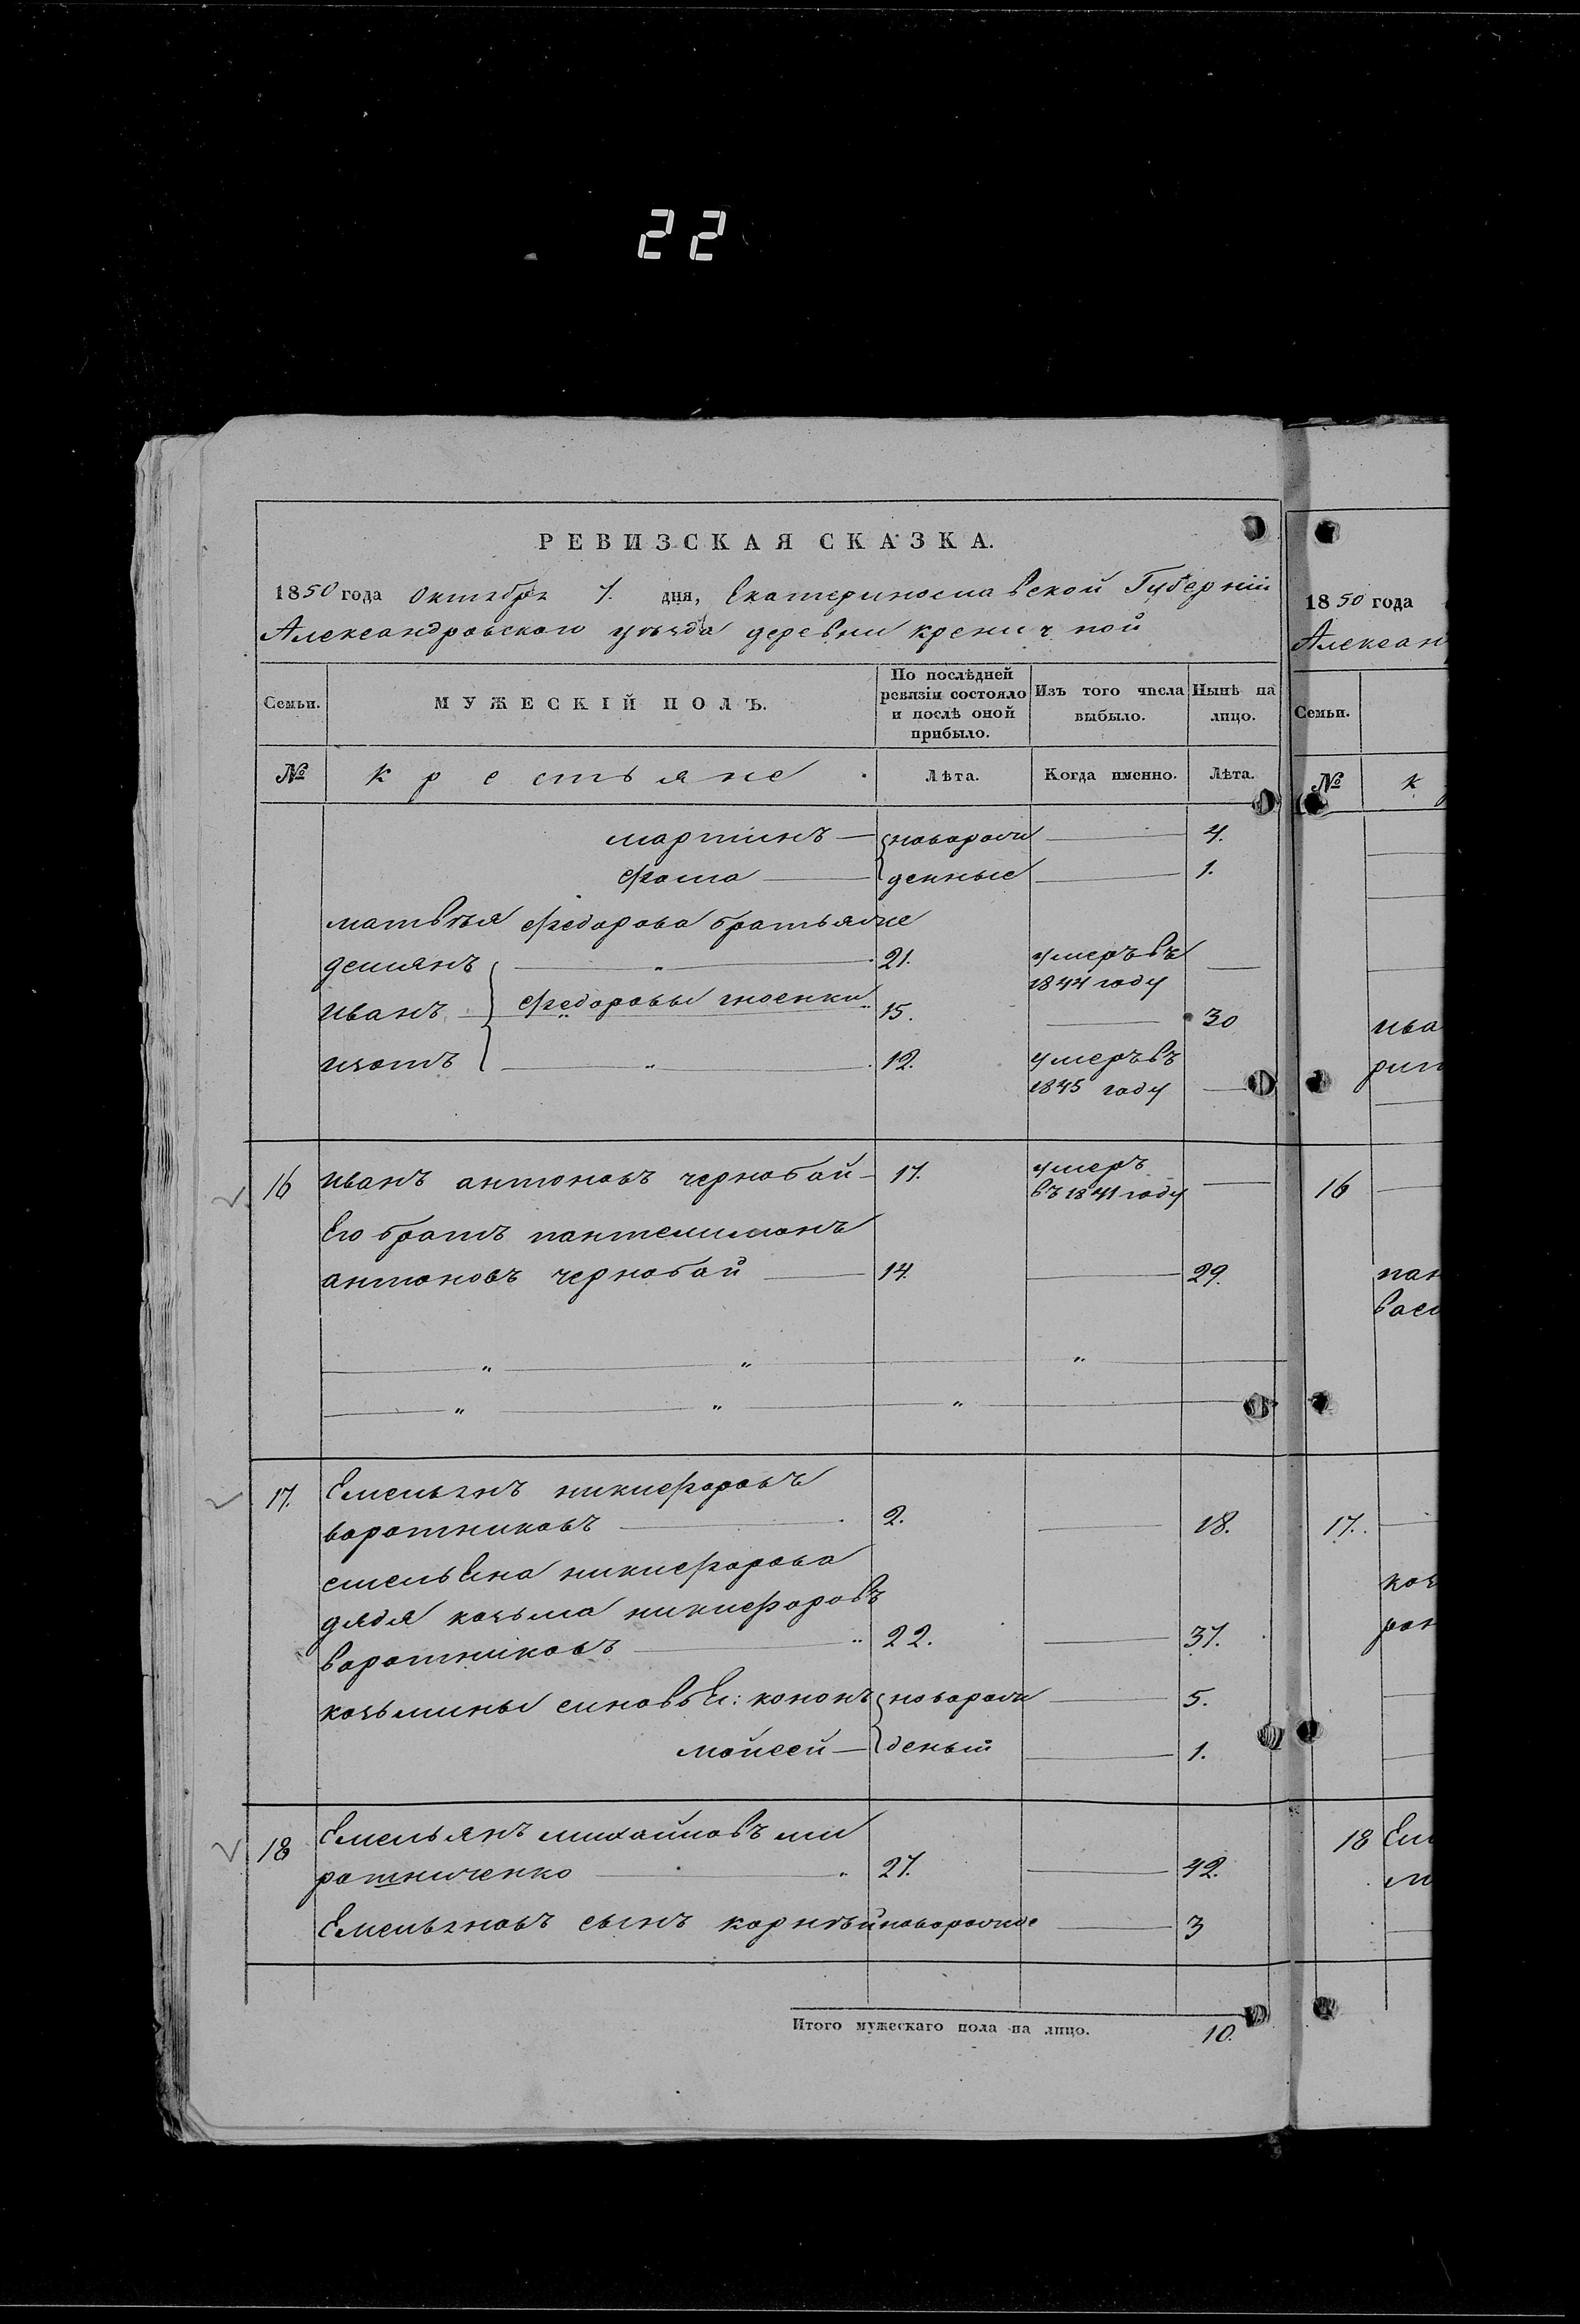 22
РЕВИЗСКАЯ СКАЗКА.
1850 года Октября 7. дня, Екатеринославской Губерніи
Александровскаго уѣзда деревни кринич ной
Семьи. МУЖЕСКІЙ ПОЛЪ. По послѣдней ревизіи состояло и послѣ оной прибыло. Изъ того числа выбыло. Нынѣ на лицо.
№ крестьяне Лѣта. Когда именно. Лѣта.
мартинъ новорож 4.
фома денные 1.
матвѣя федорова братья же
демянъ 21. умеръ въ
1844 году
иванъ федоровы гноенки 15. 30
изотъ 12. умеръ въ
1845 году
16 иванъ антоновъ чернобай 17. умеръ
въ 1841 году
Его братъ пантелимонъ
антоновъ чернобай 14. 29.
17. Емельянъ никифоровъ
воротниковъ 2. 18.
емельяна никифорова
дядя козьма никифоровъ
воротниковъ 22. 37.
козьмины сыновья: кононъ новорож 5.
мойсей деный 1.
18 Емельянъ михайловъ ми
ротниченко 27. 42.
Емельяновъ сынъ корнѣй новорожде 3
Итого мужескаго пола на лицо. 10.
1850 года
Александ
Семьи.
№ к
ива
16
пан
васи
17.
коз
18 Ем